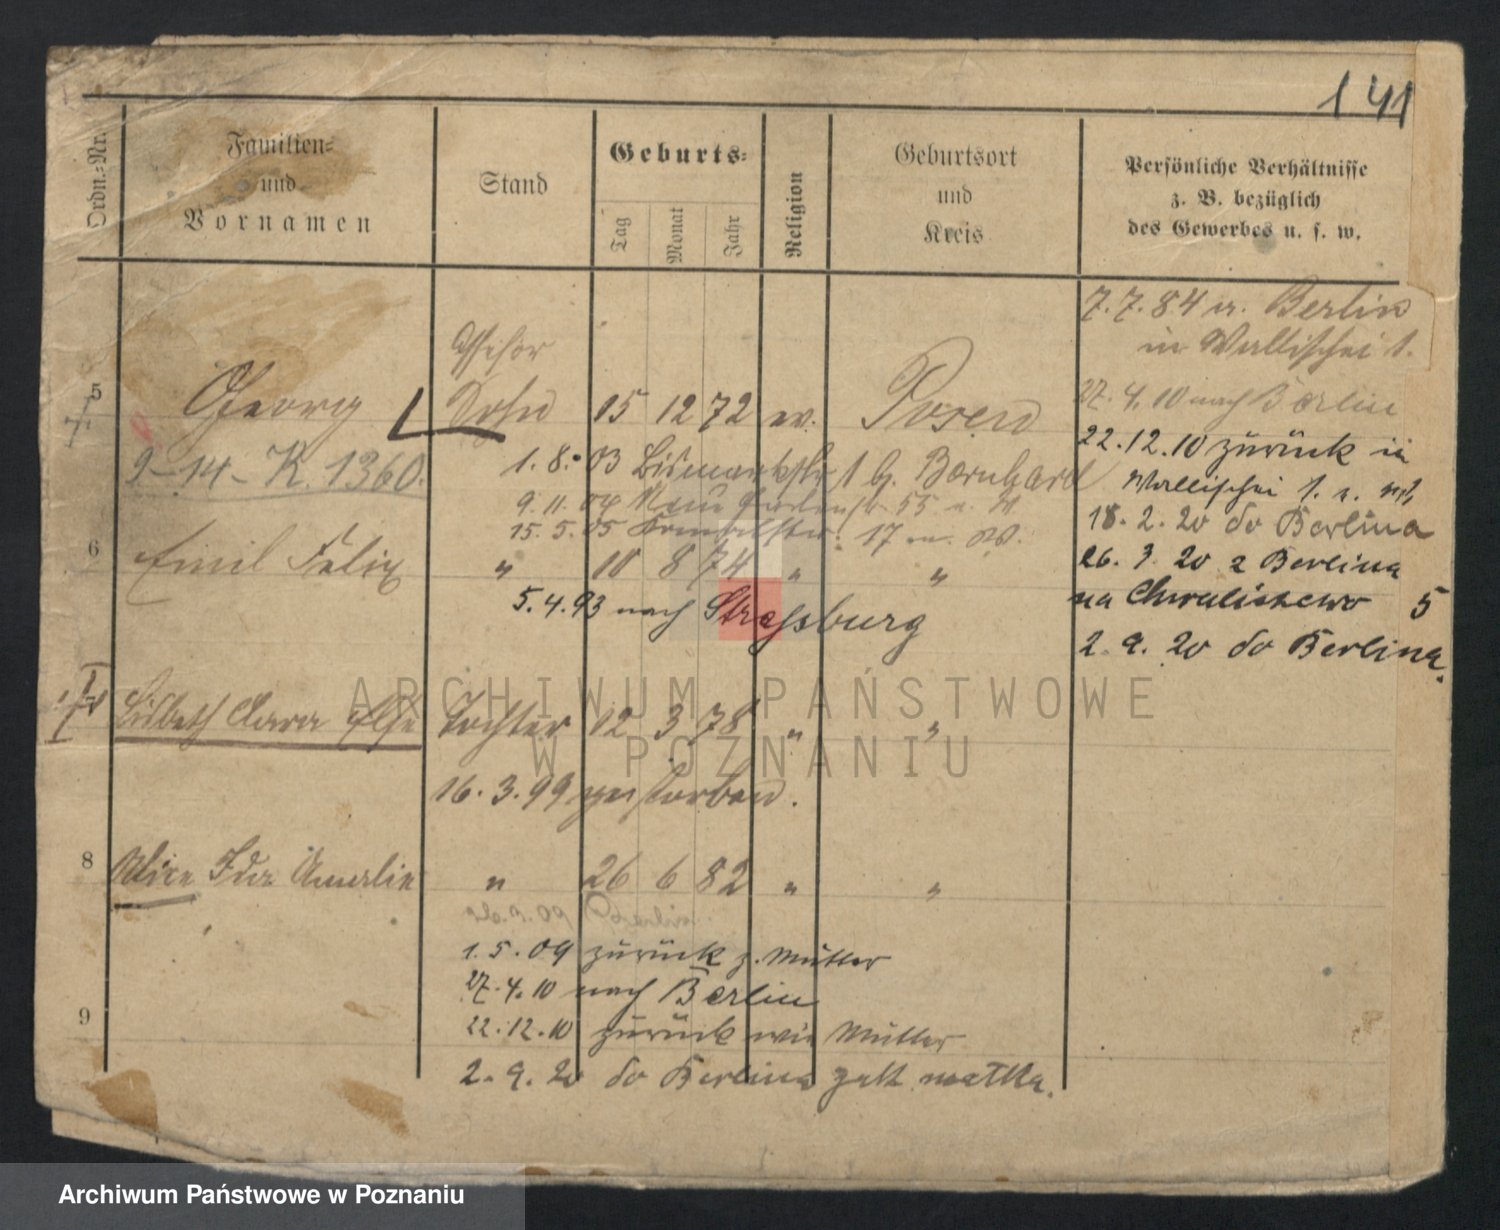 141
Ordn.-Nr.
Familien-
und
Vornamen
Stand
Geburts-
Tag
Monat
Jahr
Religion
Geburtsort
und
Kreis
Persönliche Verhältnisse
z. B. bezüglich
des Gewerbes u. s. w.
7.7.84 v. Berlin
in Wallischei 1.
Assessor
5 Georg Sohn 15 12 72 ev. Posen
27.4.10 nach Berlin
22.12.10 zurück in
Wallischei 1.
9-14-K. 1360.
1.8.03 Bismarckstr 1 b. Bernhard
9.11.04 Neue Gartenstr 55
15.5.05 17
18.2.20 do Berlina
6 Emil Felix " 10 8 74 " "
26.3.20 z Berlina
na Chwaliszewo 5
5.4.93 nach Strassburg
2.9.20 do Berlina.
7 Lisbeth Clara Else Tochter 12 3 78 " "
16.3.99 gestorben.
8 Alice Ida Amalie " 26 6 82 " "
26.9.09 Berlin
1.5.09 zurück z. Mutter
27.4.10 nach Berlin
9
22.12.10 zurück wie Mutter
2.9.20 do Berlina matka.
ARCHIWUM PAŃSTWOWE
W POZNANIU
Archiwum Państwowe w Poznaniu